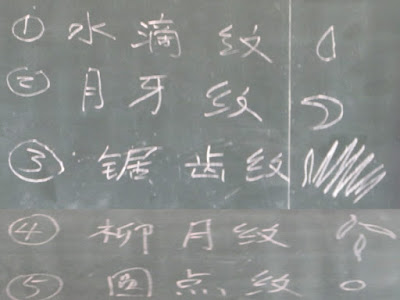 ① 水滴纹
② 月牙纹
③ 锯齿纹
④ 柳月纹
⑤ 圆点纹